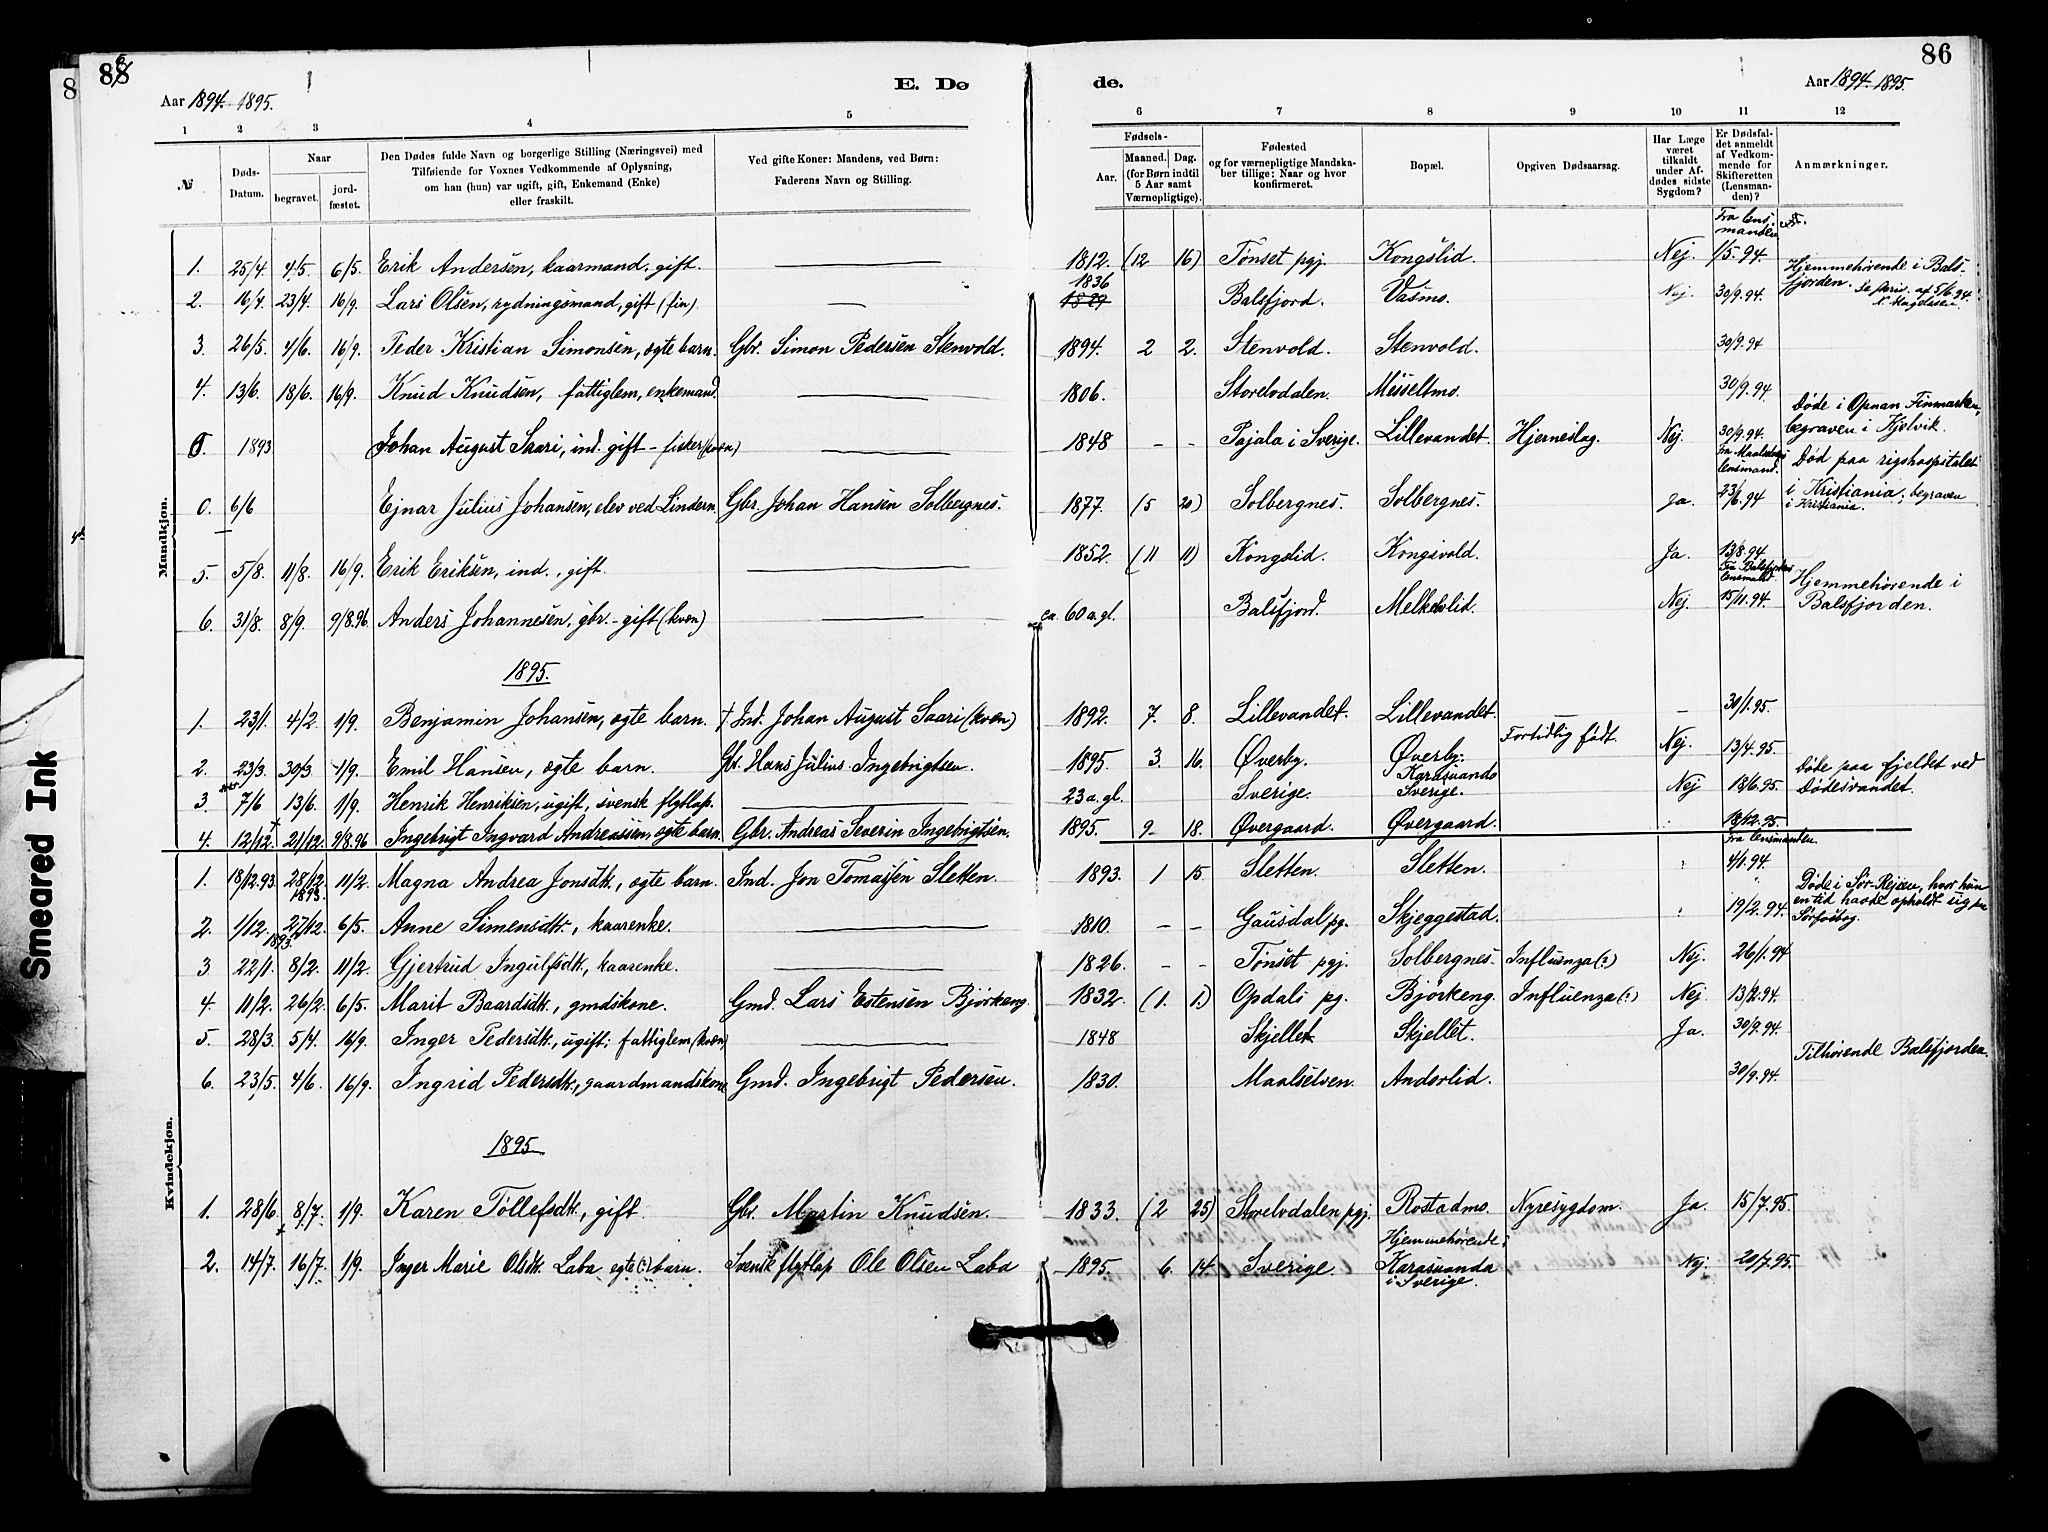 86
86
E. Dø
de.
Aar 1894-1895.
Aar 1894-1895.
1 2 3 4 5
6 7 8 9 10 11 12
№
Døds-Datum.
Naar
begravet.
jord-fæstet.
Den Dødes fulde Navn og borgerlige Stilling (Næringsvei) med
Tilføiende for Voxnes Vedkommende af Oplysning,
om han (hun) var ugift, gift, Enkemand (Enke)
eller fraskilt.
Ved gifte Koner: Mandens, ved Børn:
Faderens Navn og Stilling.
Fødsels-
Aar.
Maaned. Dag.
(for Børn indtil
5 Aar samt
Værnepligtige).
Fødested
og for værnepligtige Mandska-
ber tillige: Naar og hvor
konfirmeret.
Bopæl.
Opgiven Dødsaarsag.
Har Læge
været
tilkaldt
under Af-
dødes sidste
Sygdom?
Er Dødsfal-
det anmeldt
af Vedkom-
mende for
Skifteretten
(Lensman-
den)?
Anmærkninger.
Mandkjøn.
Fra Lens-
manden
1. 25/4. 4/5. 6/5. Erik Andersen, kaarmand, gift. 1812. (12 16) Tønset pgj. Kongslid. Nej. 1/5.94.
2. 16/4. 23/4. 16/9. Lars Olsen, rydningsmand, gift (fin). 1836 1829 Balsfjord. Vasmo. Nej. 30/9.94. Hjemmehørende i Bals-
fjorden.
3. 26/5. 4/6. 16/9. Peder Kristian Simonsen, ægte barn. Gbr. Simon Pedersen Stenvold. 1894. 2 2. Stenvold. Stenvold. 30/9.94
4. 13/6. 18/6. 16/9. Knud Knudsen, fattiglem, enkemand. 1806. Storelvdalen. Messeltmo. 30/9.94
0. 1893 Johan August Saari, ind. gift - fisker (kvæn) 1848 - - Pajala i Sverige. Lillevandet. Hjerneslag. Nej. 30/9.94. Døde i Opnan Finmarken,
begraven i Kjelvik.
Fra Maalselvens
lensmand.
0. 6/6 Ejnar Julius Johansen, elev ved Lindern. Gbr. Johan Hansen Solbergnes. 1877. (5 20) Solbergnes. Solbergnes. Ja. 23/6.94 Død paa rigshospitalet
i Kristiania, begraven
i Kristiania.
5. 5/8. 11/8. 16/9. Erik Eriksen, ind., gift. 1852. (11 11) Kongslid. Kongsvold. Ja. 13/8.94.
Fra Balsfjordens
lensmand.
6. 31/8. 8/9. 9/8.96. Anders Johannesen, gbr. - gift (kvæn) ca. 60 a.gl. Balsfjord. Melkelid. Nej. 15/11.94. Hjemmehørende i
Balsfjorden.
1895.
1. 23/1. 4/2. 1/9. Benjamin Johansen, ægte barn. † Ind. Johan August Saari (kvæn) 1892. 7. 8. Lillevandet. Lillevandet. - 30/1.95.
2. 23/3. 30/3 1/9. Emil Hansen, ægte barn. Gbr. Hans Julius Ingebrigtsen. 1895. 3. 16. Øverby. Øverby. Fortidlig født. Nej. 13/4.95.
3. 7/6 13/6. 1/9. Henrik Henriksen, ugift, svensk flytlap. 23 a.gl. Sverige. Karasuando
Sverige. Nej 18/6.95. Døde paa fjeldet ved
Dødesvandet.
4. 12/12. 21/12. 9/8.96 Ingebrigt Ingvard Andreassen, ægte barn. Gbr. Andreas Severin Ingebrigtsen. 1895. 9- 18. Øvergaard. Øvergaard. 18/12.95.
Kvindekjøn.
Fra lensmanden.
1. 18/12.93. 28/12.
1893. 11/2. Magna Andrea Jonsdtr., ægte barn. Ind. Jon Tomassen Sletten. 1893. 1 15 Sletten. Sletten. 4/1.94.
2. 1/12.
1893. 27/12. 6/5. Anne Simensdtr., kaarenke. 1810. - - Gausdal pg. Skjeggestad. 19/2.94. Døde i Sør-Rejsen, hvor hun
en tid havde opholdt sig paa
Sørfosbog.
3 22/1. 8/2. 11/2. Gjertrud Ingulfsdtr., kaarenke. 1826. - - Tønset pgj. Solbergnes. Influenza (?) Nej. 26/1.94
4. 11/2. 26/2. 6/5. Marit Baardsdtr., gmdskone. Gmd. Lars Estensen Bjørkeng. 1832. (1. 1.) Opdals pg. Bjørkeng. Influenza (?) Nej. 13/2.94.
5. 28/3. 5/4. 16/9. Inger Pedersdtr., ugift; fattiglem (kvæn) 1848 Skjellet. Skjellet. Ja. 30/9.94. Tilhørende Balsfjorden.
6. 23/5. 4/6. 16/9. Ingrid Pedersdtr., gaardmandskone Gmd. Ingebrigt Pedersen. 1830. Maalselven. Anderlid. 30/9.94.
1895
1. 28/6. 8/7. 1/9. Karen Tollefsdtr., gift. Gbr. Martin Knudsen. 1833. (2 25) Storelvdalen pgj. Rostadmo. Nyresygdom. Ja. 15/7.95.
2. 14/7. 16/7. 1/9. Inger Marie Olsdtr. Laba ægte (?) barn. Svensk flytlap Ole Olsen Laba 1895. 6. 14. Sverige. Hjemmehørende i
Karasuanda
i Sverige. Nej. 20/7.95.
Smeared Ink